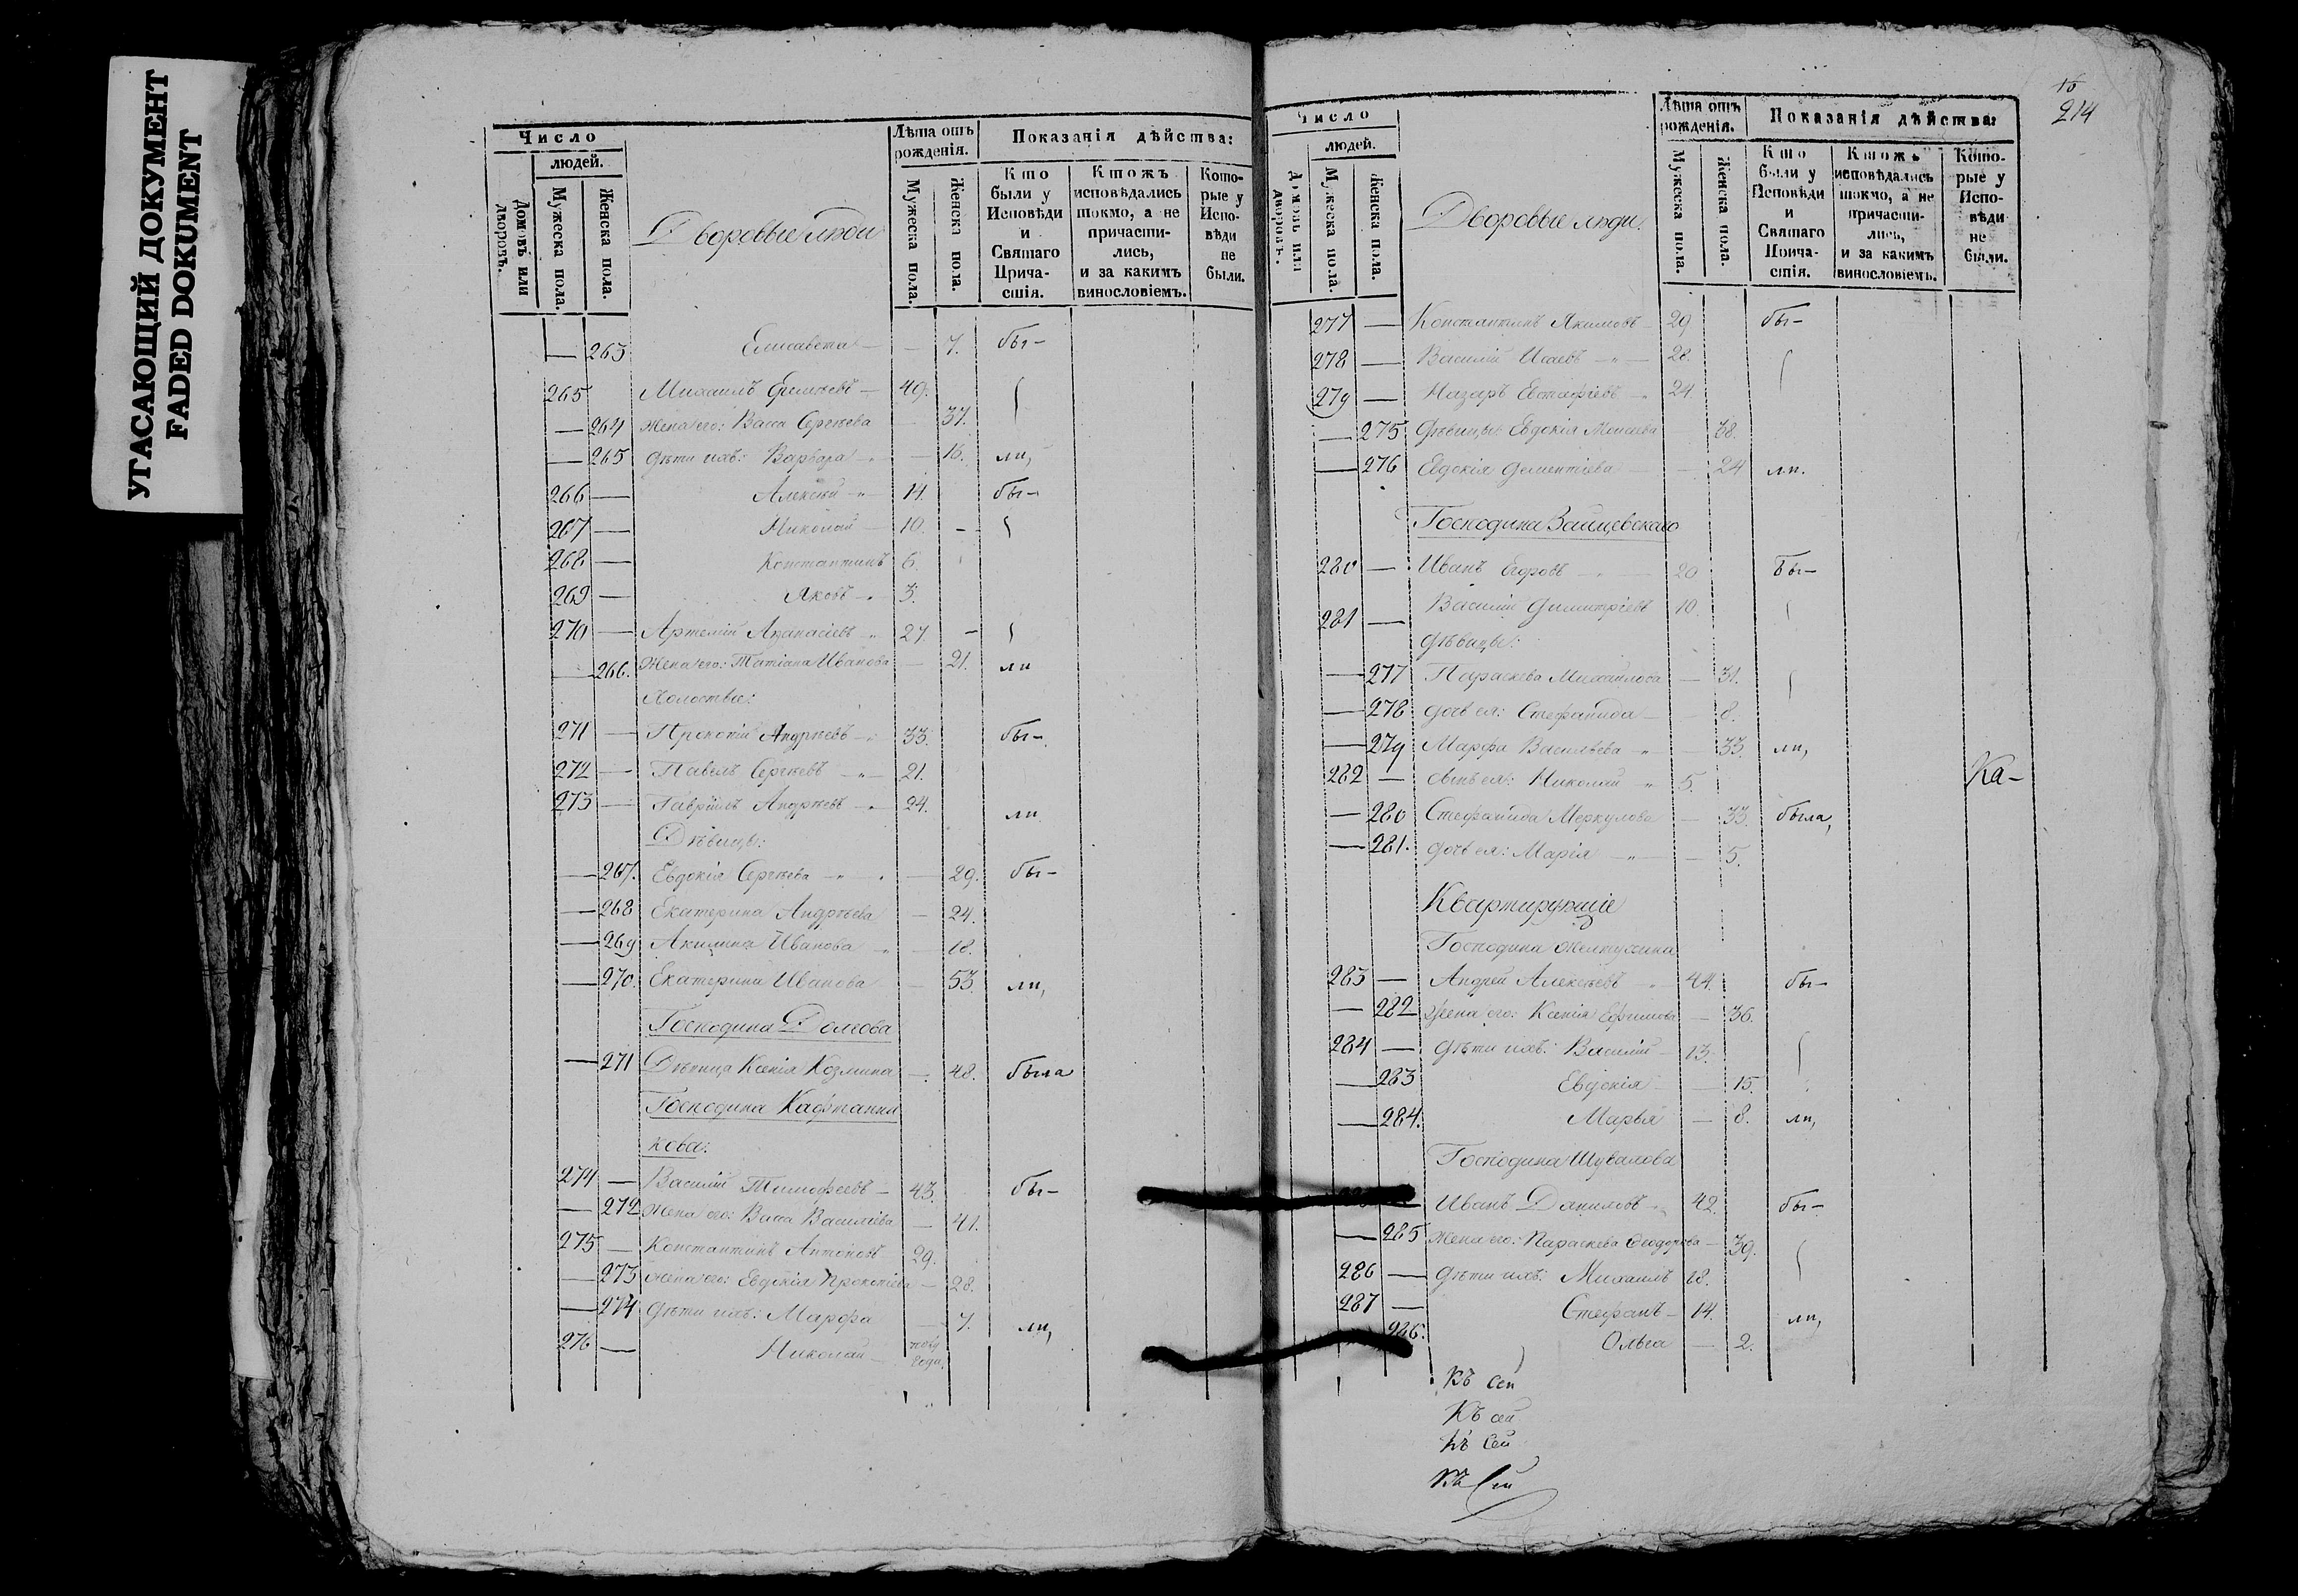 УГАСАЮЩИЙ ДОКУМЕНТ
FADED DOKUMENT
Число
людей.
Домовъ или дворовъ.
Мужеска пола.
Женска пола.
Дворовые люди
Лѣта отъ рожденія.
Мужеска пола.
Женска пола.
Показанія дѣйства:
Кто были у Исповѣди и Святаго Причастія.
Ктожъ исповѣдались токмо, а не причастились, и за какимъ винословіемъ.
Которые у Исповѣди не были.
— 263 Елисавета — — 7. бы-
265 Михаилъ — 49.
— 264 Жена его: Васса Сергѣева — 37.
— 265 Дѣти ихъ: Варвара — 16. ли,
266 — Алексѣй 14. бы-
267 — Николай — 10. -
268 — Константинъ 6.
269 — Яковъ 3.
270 — Артемій Аѳанасіевъ 27. -
— 266. Жена его: Татіана Иванова — 21. ли
Холостые:
271 — Прокопій Андреевъ 33. бы-
272 — Павелъ Сергѣевъ 21.
273 — Гавріилъ Андреевъ 24. ли
Дѣвицы:
— 267. Евдокія Сергѣева — 29. бы-
— 268 Екатерина Андреева — 24.
— 269 Акилина Иванова — 18.
— 270. Екатерина Иванова — 53. ли,
Господина Долгова
— 271 Дѣвица Ксенія Козмина — 48. была
Господина Кафтанни
кова:
274 — Василій Тимофеевъ — 43. бы-
— 272 Жена его: Васса Василіева — 41.
275 — Константинъ Антоновъ 29.
— 273 Жена его: Евдокія Прокопіева — 28.
— 274 Дѣти ихъ: Марфа — 7. ли,
276 — Николай — года.
15
214
Число
людей.
Домовъ или дворовъ.
Мужеска пола.
Женска пола.
Дворовые люди.
Лѣта отъ рожденія.
Мужеска пола.
Женска пола.
Показанія дѣйства:
Кто были у Исповѣди и Святаго Причастія.
Ктожъ исповѣдались токмо, а не причастились, и за какимъ винословіемъ.
Которые у Исповѣди не были.
277 — Константинъ Якимовъ 29 бы-
278 — Василій Исаевъ 28.
279 — Назаръ Евстафіевъ 24.
— 275 Дѣвицы: Евдокія Моисеева 38.
— 276 Евдокія Дементіева — 24 ли.
Господина Зайцевскаго
280 — Иванъ Егоровъ 20 бы-
281 — Василій Димитріевъ 10.
Дѣвицы:
— 277 Параскева Михайлова — 31.
— 278 дочь ея: Стефанида — 8.
— 279 Марфа Васильева — 33. ли,
282 — сынъ ея: Николай 5. Ка-
— 280 Стефанида Меркулова — 33. была,
— 281. дочь ея: Марія — 5.
Квартирующіе
Господина Желтухина
283 — Андрей Алексѣевъ 44. бы-
— 282 Жена его: Ксенія Ефимова — 36.
284 — Дѣти ихъ: Василій 13.
— 283 Евдокія — 15.
— 284. Марья — 8. ли,
Господина Шувалова
Иванъ Даниловъ 42. бы-
— 285 Жена его: Параскева Ѳеодорова — 39.
286 — Дѣти ихъ: Михаилъ 18.
287 — Стефанъ — 14. ли,
286. Ольга — 2.
Къ сей
Къ сей
Къ сей
Къ сей